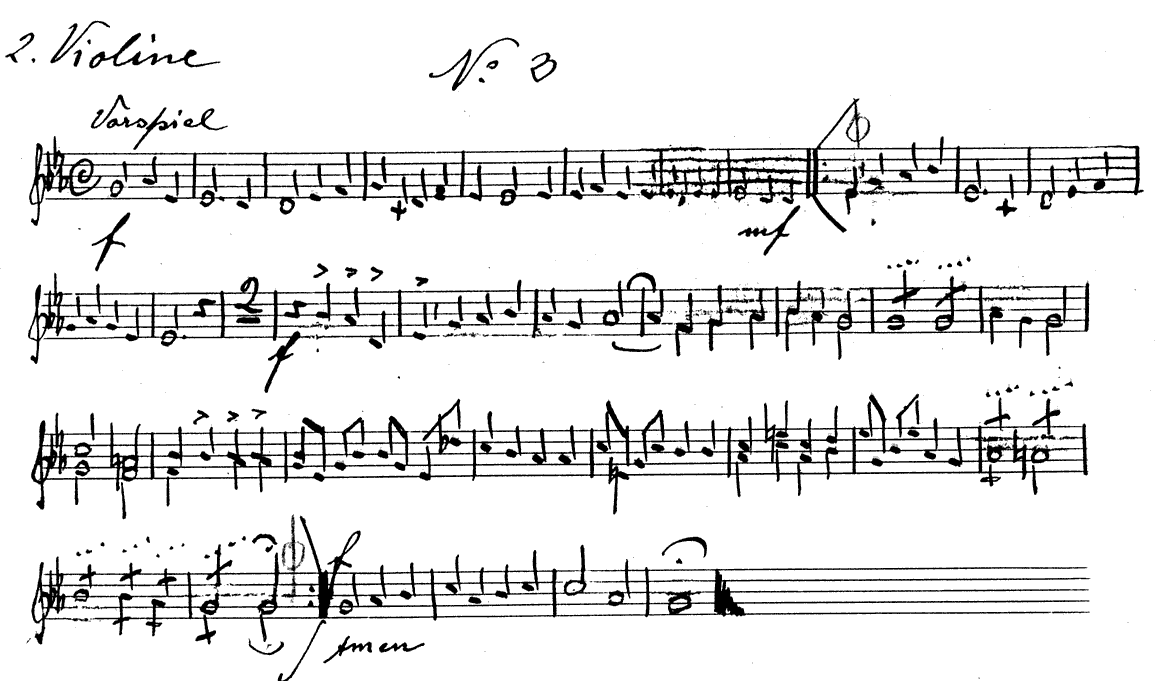 2. Violine
No. 3
Vorspiel
f
mf
2
f
f
Amen